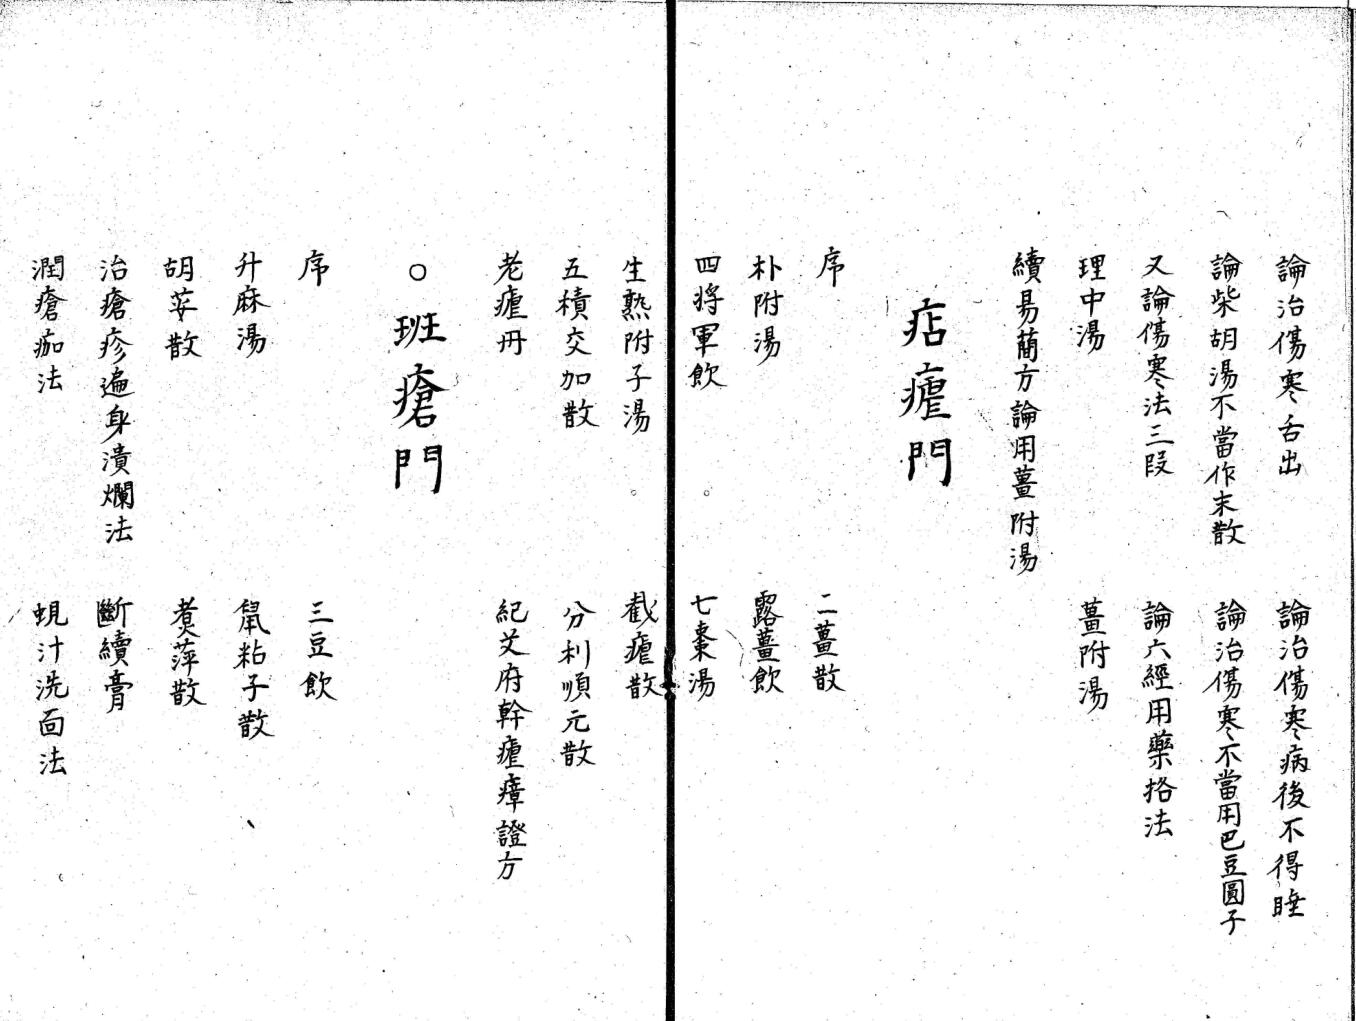 論治傷寒舌出　論治傷寒病後不得睡
論柴胡湯不當作末散　論治傷寒不當用巴豆圓子
又論傷寒法三段　論六經用藥挌法
理中湯　薑附湯
續易蕳方論用薑附湯
痁瘧門
序　二薑散
朴附湯　露薑飲
四將軍飲　七棗湯
生熟附子湯　截瘧散
五積交加散　分利順元散
老瘧丹　紀艾府幹瘧瘴證方
○班瘡門
序　三豆飲
升麻湯　鼠粘子散
胡荽散　煑萍散
治瘡疹遍身潰爛法　斷續膏
潤瘡痂法　蜆汁洗面法